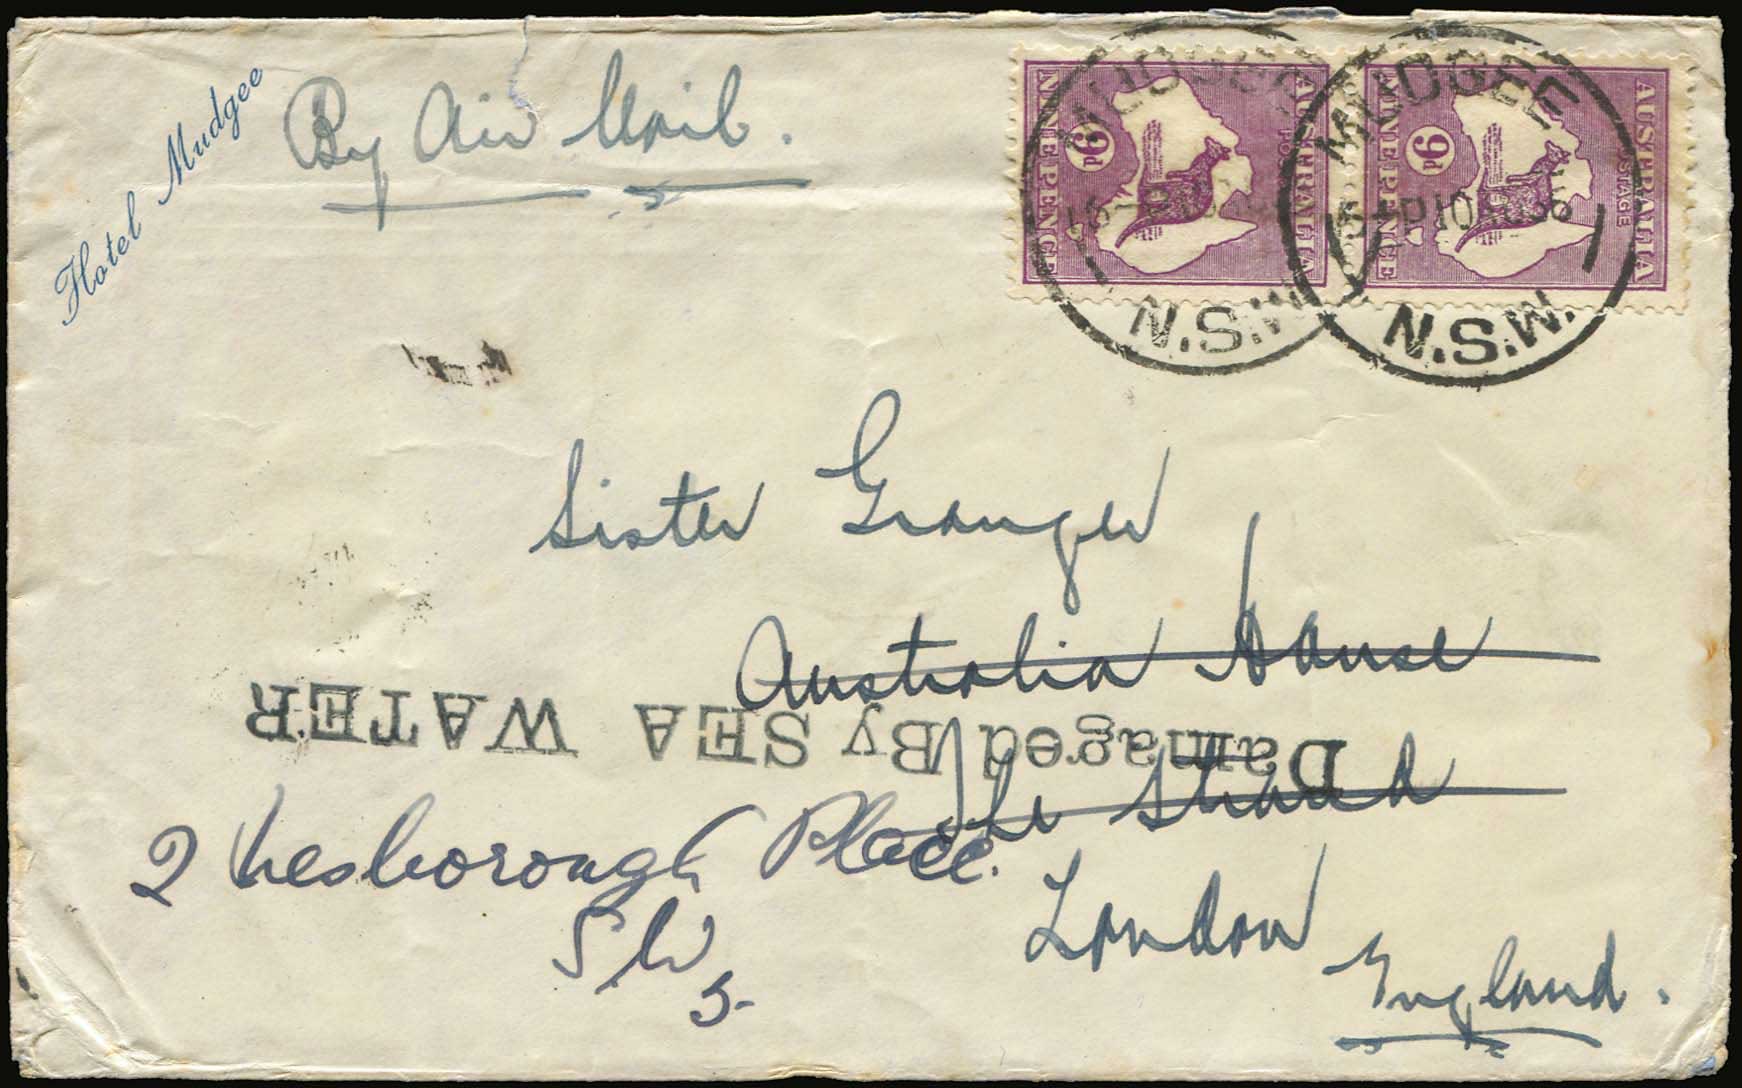 Hotel Mudgee
By Air Mail.
AUSTRALIA
POSTAGE
9d
NINE PENCE
AUSTRALIA
POSTAGE
9d
NINE PENCE
MUDGEE
N.S.W.
MUDGEE
10 AU 36
N.S.W.
Sister Granger
Australia House
The Strand
London
England.
Damaged By SEA WATER
2 Place.
S W